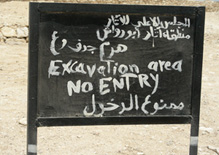 المجلس الأعلى للآثار
منطقة آثار أبو رواش
هرم جدف رع
Excavation area
NO ENTRY
ممنوع الدخول